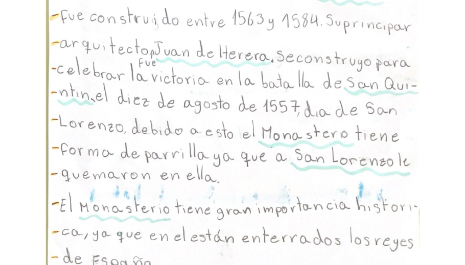 -Fue construido entre 1563 y 1584. Su principar
-arquitecto fue Juan de Herera. Se construyo para
-celebrar la victoria en la batalla de San Qui-
-ntin, el diez de agosto de 1557, dia de San
-Lorenzo, debido a esto el Monastero tiene
-forma de parrilla ya que a San Lorenzo le
-quemaron en ella.
-El Monasterio tiene gran importancia histori-
-ca, ya que en el están enterrados los reyes
-de España